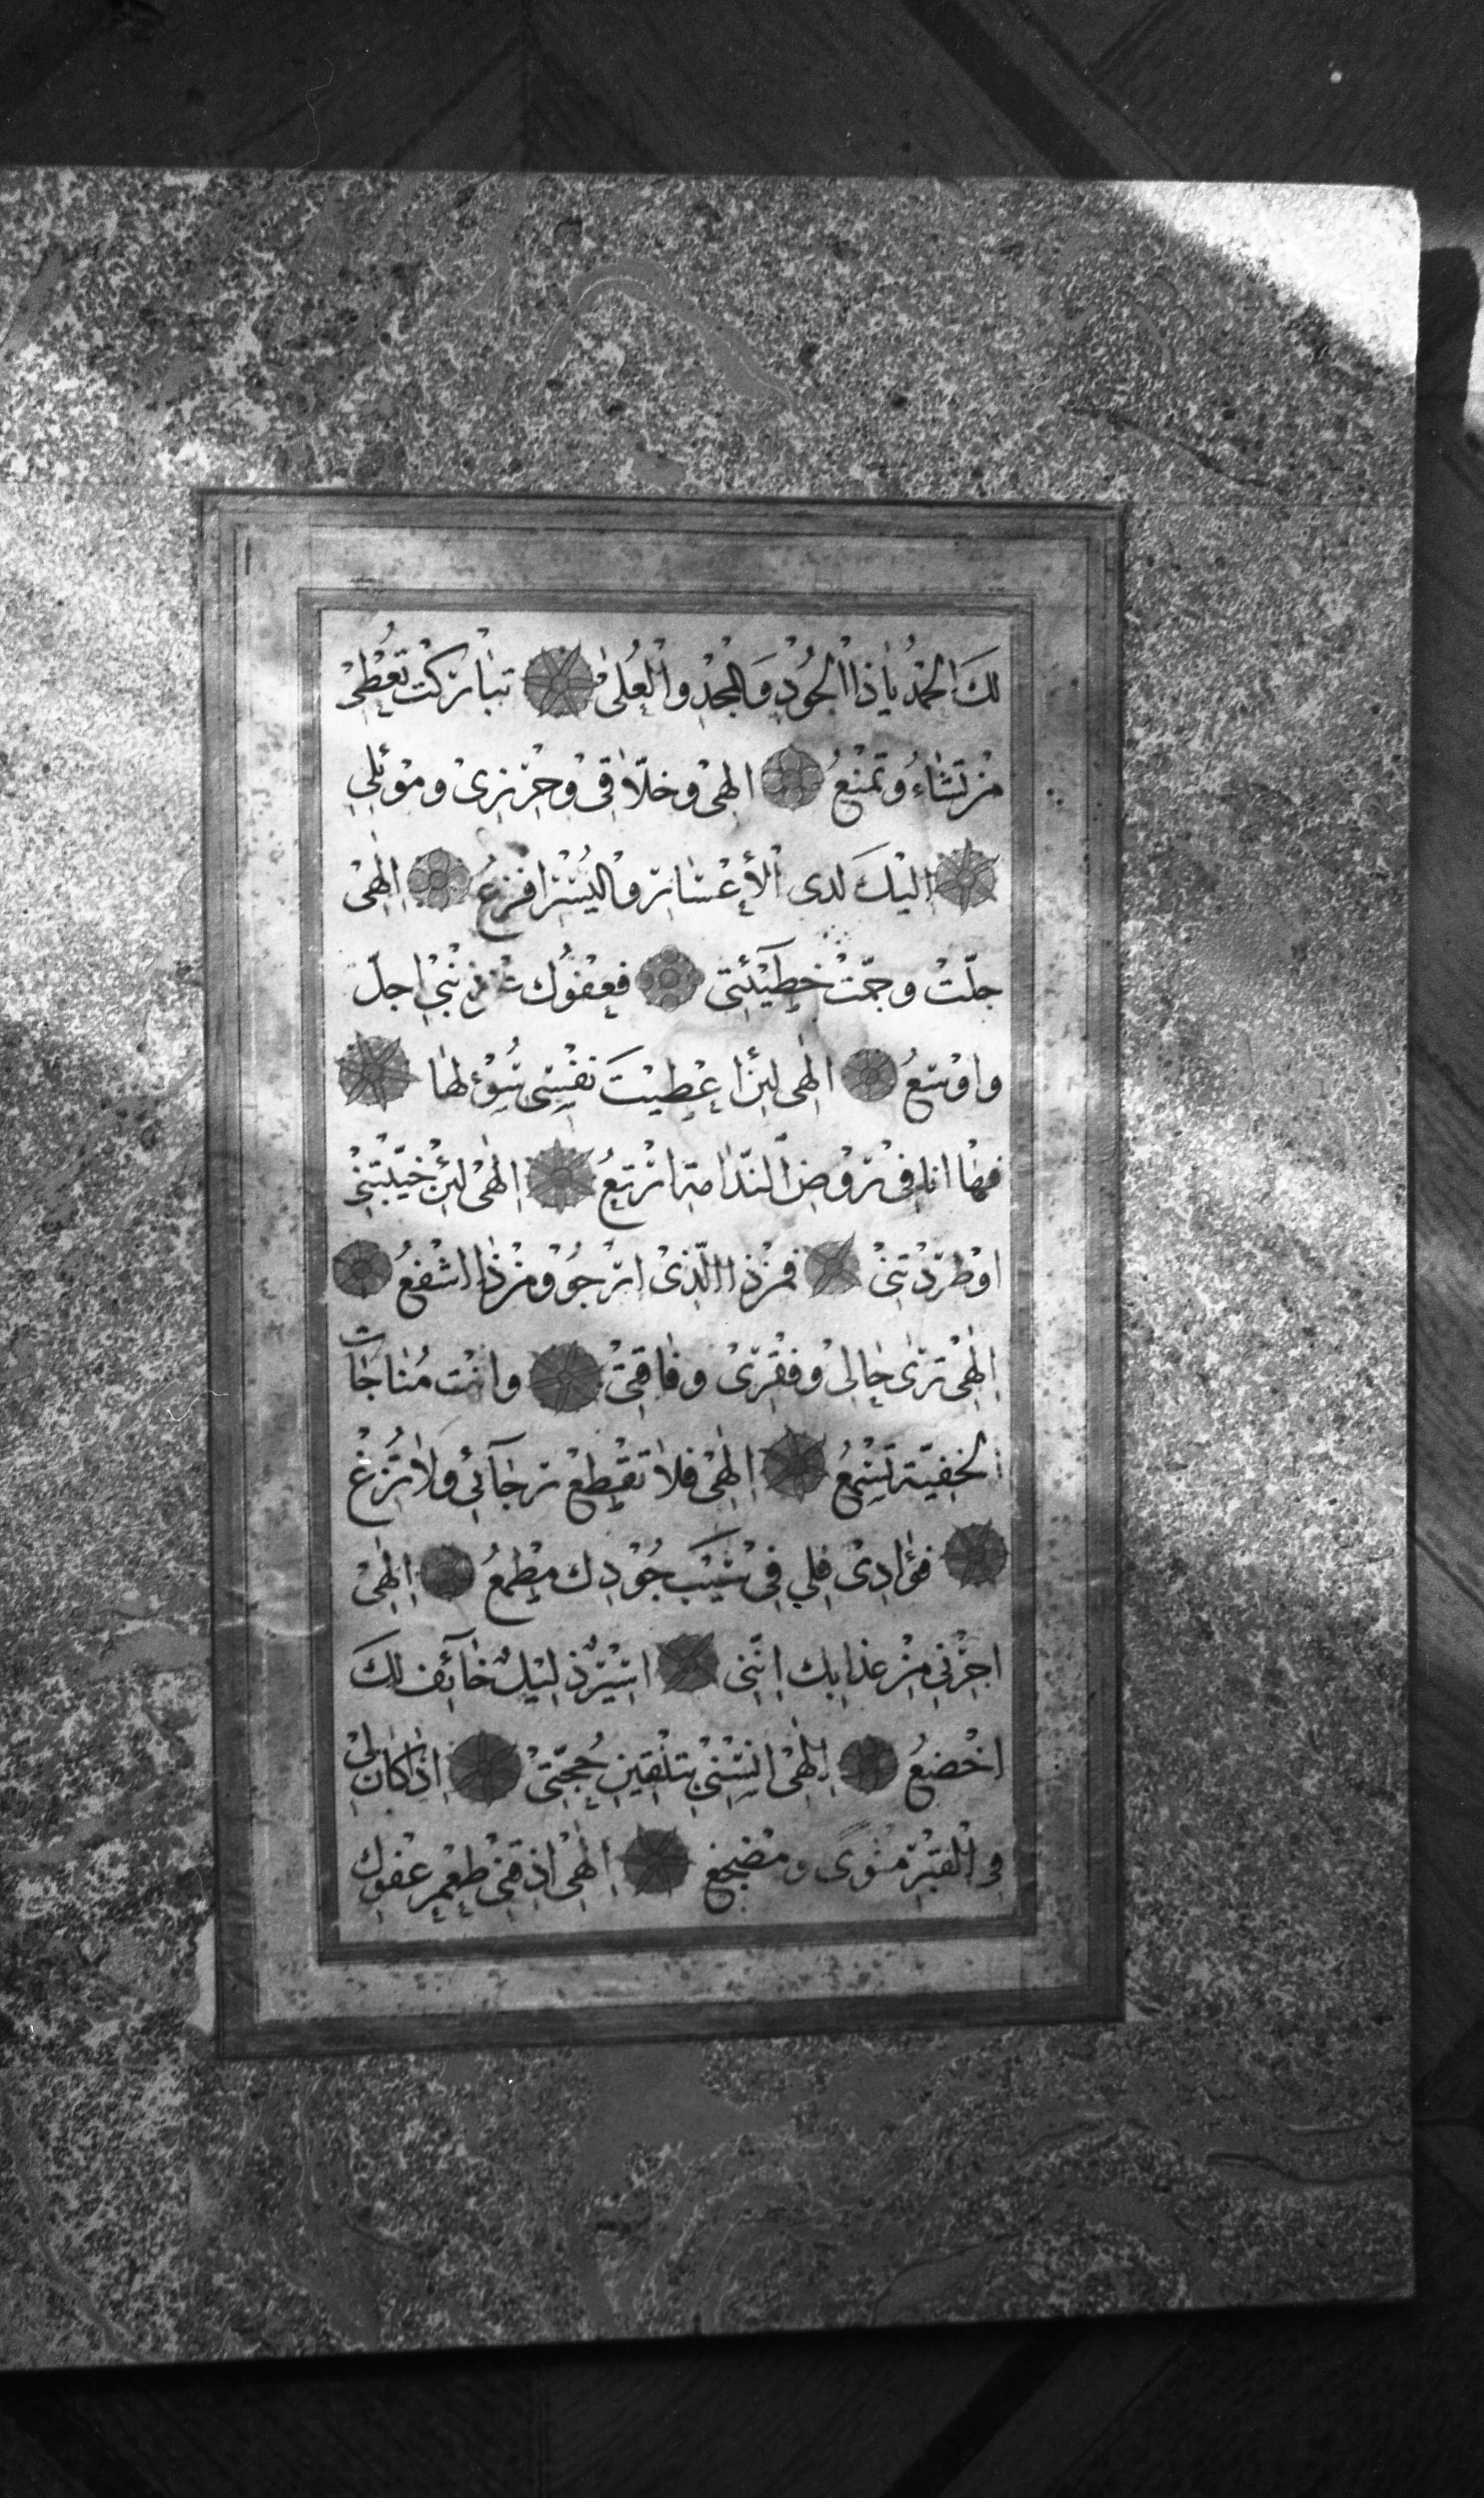 لَكَ الْحَمْدُ يَا ذَا الْجُوْدِ وَالْمَجْدِ وَالْعُلىٰ تَبَارَكْتَ تُعْطِيْ
مَنْ تَشَاءُ وَتَمْنَعُ اِلٰهِيْ وَخَلَّاقِيْ وَحِرْزِيْ وَمَوْئِلِيْ
اِلَيْكَ لَدَى الْأِعْسَارِ وَالْيُسْرِ اَفْزَعُ اِلٰهِيْ
جَلَّتْ وَجَمَّتْ خَطِيْئَتِيْ فَعَفْوُكَ عَنْ ذَنْبِيْ اَجَلُّ
وَاَوْسَعُ اِلٰهِيْ لَئِنْ اَعْطَيْتَ نَفْسِيْ سُؤْلَهَا
فَهَا اَنَا فِيْ رَوْضِ النَّدَامَةِ اَرْتَعُ اِلٰهِيْ لَئِنْ خَيَّبْتَنِيْ
اَوْ طَرَدْتَنِيْ فَمَنْ ذَا الَّذِيْ اَرْجُوْ وَمَنْ ذَا اُشَفِّعُ
اِلٰهِيْ تَرٰى حَالِيْ وَفَقْرِيْ وَفَاقَتِيْ وَاَنْتَ مُنَاجَاتِ
الْخَفِيَّةِ تَسْمَعُ اِلٰهِيْ فَلَا تَقْطَعْ رَجَائِيْ وَلَا تُزِغْ
فُؤَادِيْ فَلِي فِيْ سَيْبِ جُوْدِكَ مَطْمَعُ اِلٰهِيْ
اَجِرْنِيْ مِنْ عَذَابِكَ اِنَّنِيْ اَسِيْرٌ ذَلِيْلٌ خَائِفٌ لَكَ
اَخْضَعُ اِلٰهِيْ اٰنِسْنِيْ بِتَلْقِيْنِ حُجَّتِيْ اِذَا كَانَ لِيْ
فِي الْقَبْرِ مَثْوًى وَمَضْجَعُ اِلٰهِيْ اَذِقْنِيْ طَعْمَ عَفْوِكَ